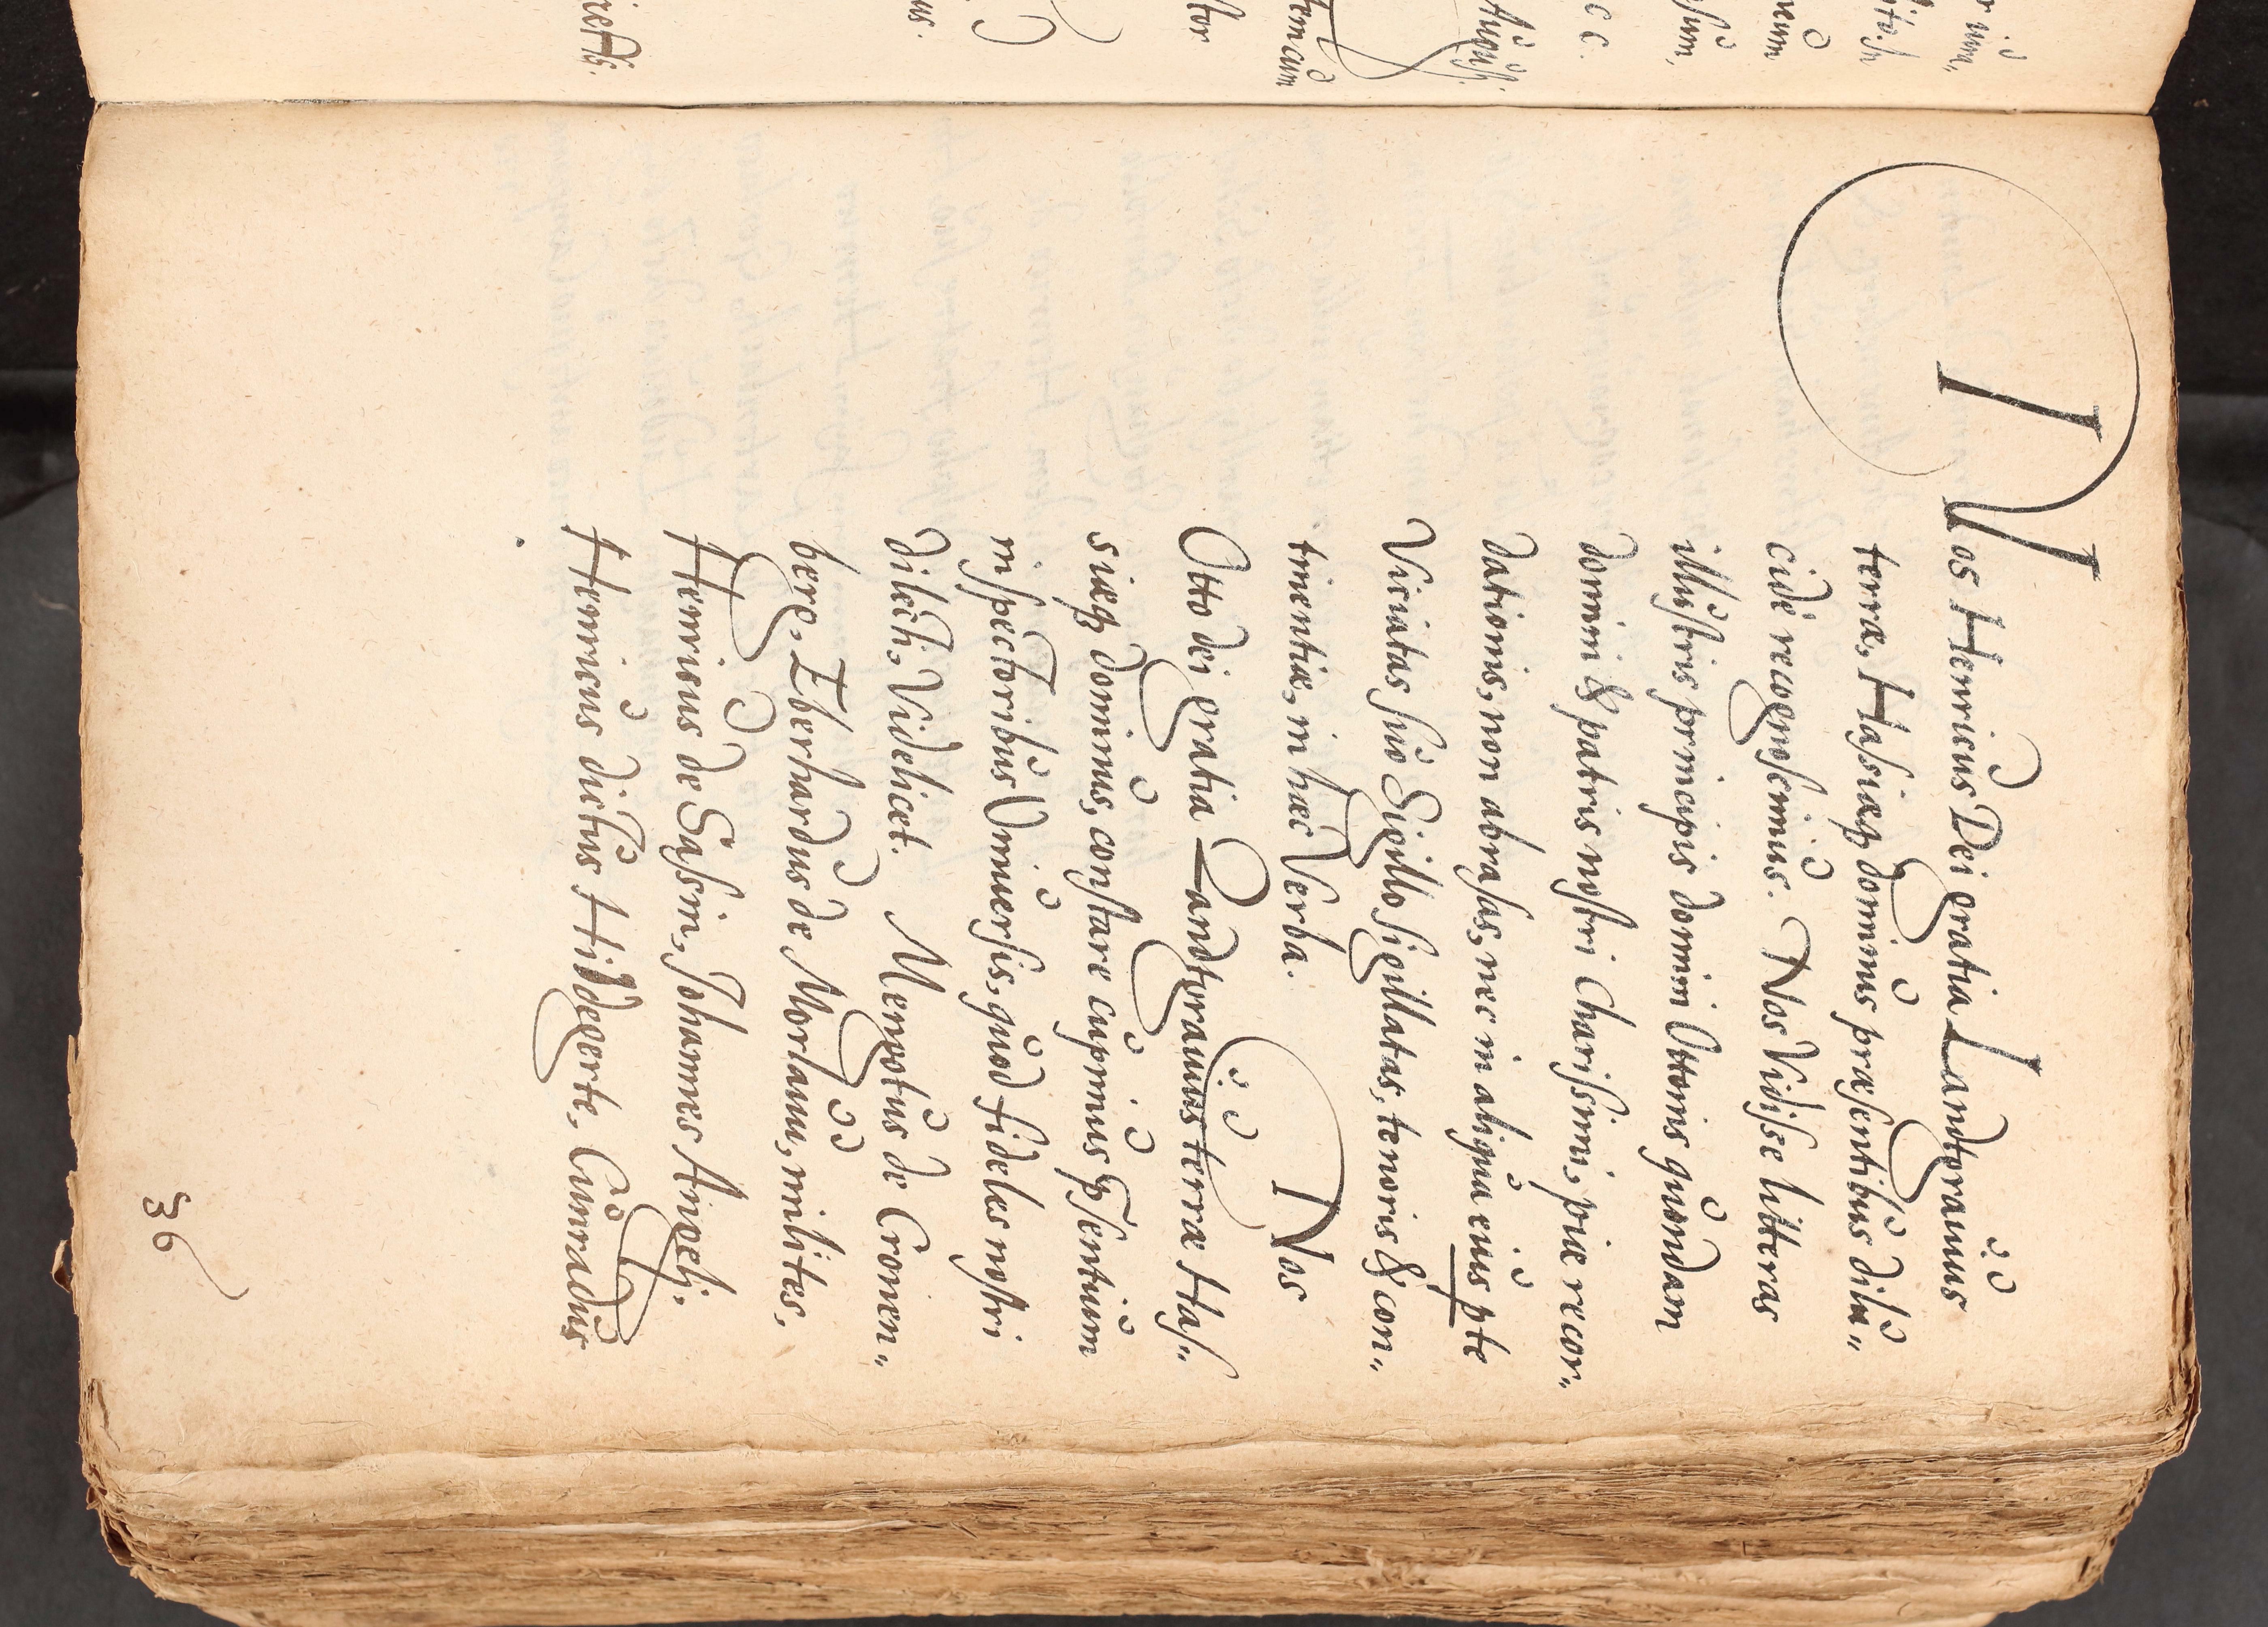 Nos Henricus Dei gratia Landtgrauius
terræ, Haſsiæq; dominus præsentibus dilu„
cidè recognoſcimus. Nos Vidiſse litteras
illuſtris principis domini Ottonis quondam
domini & patris noſtri chariſsimi, piæ recor„
dationis, non abraſas, nec in aliqua eius pte
Viciatas ſuo Sigillo ſigillatas, tenoris & con„
tinentiæ, in hæc Verba. Nos
Otto dei gratia Landtgrauius terræ Haſ„
siæq; dominus, conſtare cupimus pſentium
inſpectoribus Vniuerſis, quod fideles noſtri
dilecti, Videlicet. Mengotus de Cronen„
berg, Eberhardus de Morlaum, milites,
Henricus de Saſsin, Johannes Angeli,
Henricus dictus Hildegerte, Cunradus
36